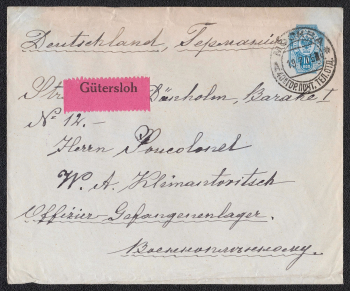 Deutschland, Германія
Gütersloh
Str Dänholm, Barake I
№ 12.-
Herrn Poucolonel
W. A. Klimantovitsch
Offizier Gefangenenlager.
Военноплѣнному.